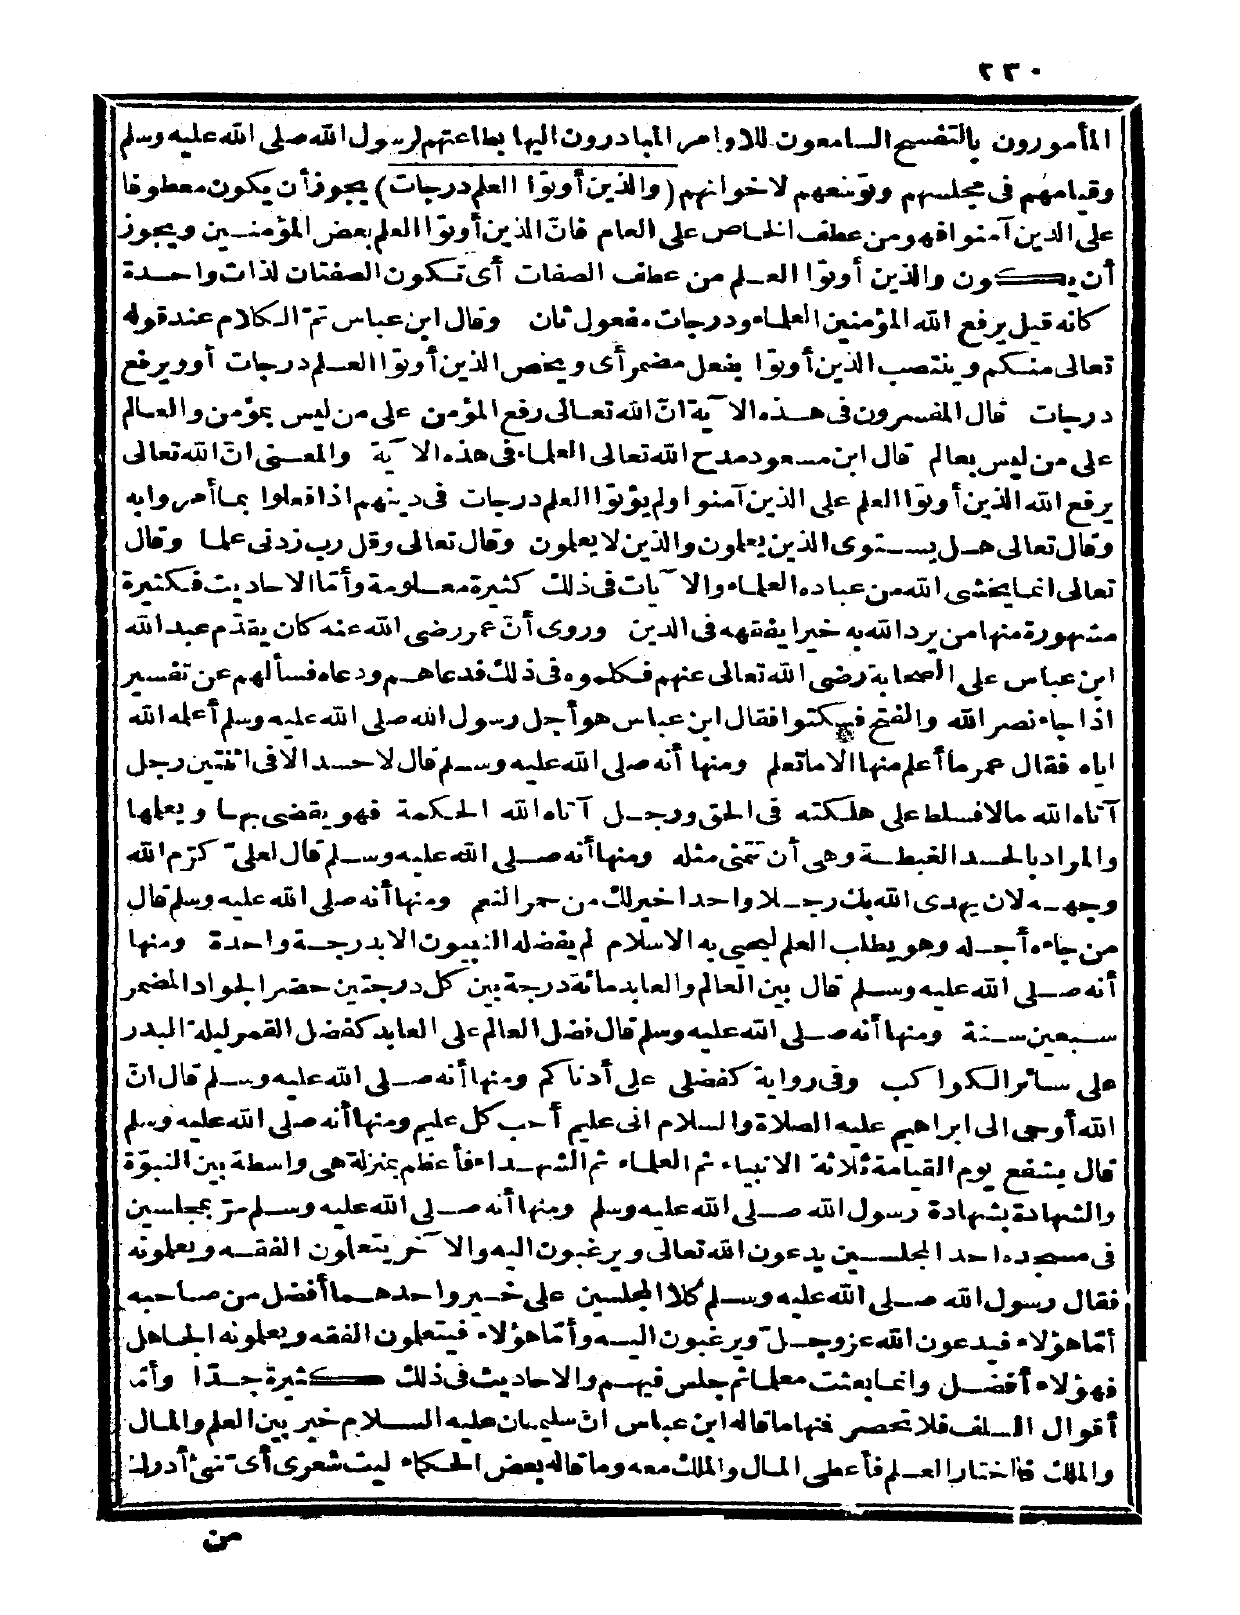 ٢٣٠
المأمورون بالتفسح السامعون للاوامر المبادرون اليها بطاعتهم لرسول الله صلى الله عليه وسلم
وقيامهم فى مجلسهم وتوسعهم لاخوانهم (والذين أوتوا العلم درجات) يجوز أن يكون معطوفا
على الذين آمنوا فهو من عطف الخاص على العام فانّ الذين أوتوا العلم بعض المؤمنين ويجوز
أن يكون والذين أوتوا العلم من عطف الصفات أى تكون الصفتان لذات واحدة
كانه قيل يرفع الله المؤمنين العلماء ودرجات مفعول ثان وقال ابن عباس تمّ الكلام عند قوله
تعالى منكم وينتصب الذين أوتوا بفعل مضمر أى ويخص الذين أوتوا العلم درجات أو ويرفع
درجات قال المفسرون فى هذه الآية انّ الله تعالى رفع المؤمن على من ليس بمؤمن والعالم
على من ليس بعالم قال ابن مسعود مدح الله تعالى العلماء فى هذه الآية والمعنى انّ الله تعالى
يرفع الله الذين أوتوا العلم على الذين آمنوا ولم يؤتوا العلم درجات فى دينهم اذا فعلوا بما أمروا به
وقال تعالى هل يستوى الذين يعلمون والذين لا يعلمون وقال تعالى وقل رب زدنى علما وقال
تعالى انما يخشى الله من عباده العلماء والآيات فى ذلك كثيرة معلومة وأمّا الاحاديث فكثيرة
مشهورة منها من يرد الله به خيرا يفقهه فى الدين وروى أنّ عمر رضى الله عنه كان يقدّم عبد الله
ابن عباس على الصحابة رضى الله تعالى عنهم فكلموه فى ذلك فدعاهم ودعاه فسألهم عن تفسير
اذا جاء نصر الله والفتح فسكتوا فقال ابن عباس هو أجل رسول الله صلى الله عليه وسلم أعلمه الله
اياه فقال عمر ما أعلم منها الا ما تعلم ومنها أنه صلى الله عليه وسلم قال لا حسد الا فى اثنتين رجل
آتاه الله مالا فسلط على هلكته فى الحق ورجل آتاه الله الحكمة فهو يقضى بها ويعلمها
والمراد بالحسد الغبطة وهى أن تتمنى مثله ومنها أنه صلى الله عليه وسلم قال لعلىّ كرّم الله
وجهه لان يهدى الله بك رجلا واحدا خير لك من حمر النعم ومنها أنه صلى الله عليه وسلم قال
من جاءه أجله وهو يطلب العلم ليحيى به الاسلام لم يفضله النبيون الا بدرجة واحدة ومنها
أنه صلى الله عليه وسلم قال بين العالم والعابد مائة درجة بين كل درجتين حضر الجواد المضمر
سبعين سنة ومنها أنه صلى الله عليه وسلم قال فضل العالم على العابد كفضل القمر ليلة البدر
على سائر الكواكب وفى رواية كفضلى على أدناكم ومنها أنه صلى الله عليه وسلم قال انّ
الله أوحى الى ابراهيم عليه الصلاة والسلام انى عليم أحب كل عليم ومنها أنه صلى الله عليه وسلم
قال يشفع يوم القيامة ثلاثة الانبياء ثم العلماء ثم الشهداء فأعظم بمنزلة هى واسطة بين النبوّة
والشهادة بشهادة رسول الله صلى الله عليه وسلم ومنها أنه صلى الله عليه وسلم مرّ بمجلسين
فى مسجده احد المجلسين يدعون الله تعالى ويرغبون اليه والآخر يتعلمون الفقه ويعلمونه
فقال رسول الله صلى الله عليه وسلم كلا المجلسين على خير واحدهما أفضل من صاحبه
أمّا هؤلاء فيدعون الله عز وجلّ ويرغبون اليه وأمّا هؤلاء فيتعلمون الفقه ويعلمونه الجاهل
فهؤلاء أفضل وانما بعثت معلما ثم جلس فيهم والاحاديث فى ذلك كثيرة جدّا وأمّا
أقوال السلف فلا تحصر فمنها ما قاله ابن عباس انّ سليمان عليه السلام خير بين العلم والمال
والملك فاختار العلم فأعطى المال والملك معه وما قاله بعض الحكماء ليت شعرى أىّ شئ أدرك
من